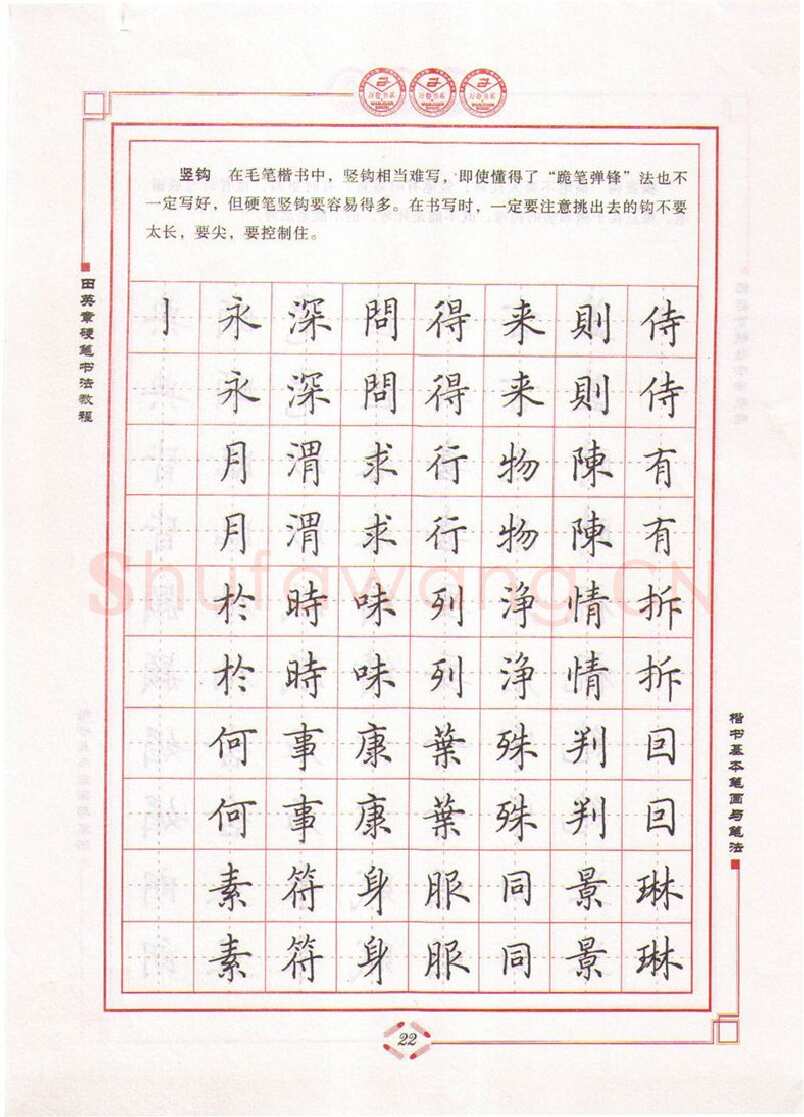 竖钩 在毛笔楷书中，竖钩相当难写，即使懂得了“跪笔弹锋”法也不
一定写好，但硬笔竖钩要容易得多。在书写时，一定要注意挑出去的钩不要
太长，要尖，要控制住。
田英章硬笔书法教程
亅永深問得来則侍
永深問得来則侍
月渭求行物陳有
月渭求行物陳有
於時味列浄情拆
於時味列浄情拆
何事康葉殊判回
何事康葉殊判回
素符身服同景琳
素符身服同景琳
Shufawang.CN
楷书基本笔画与笔法
22